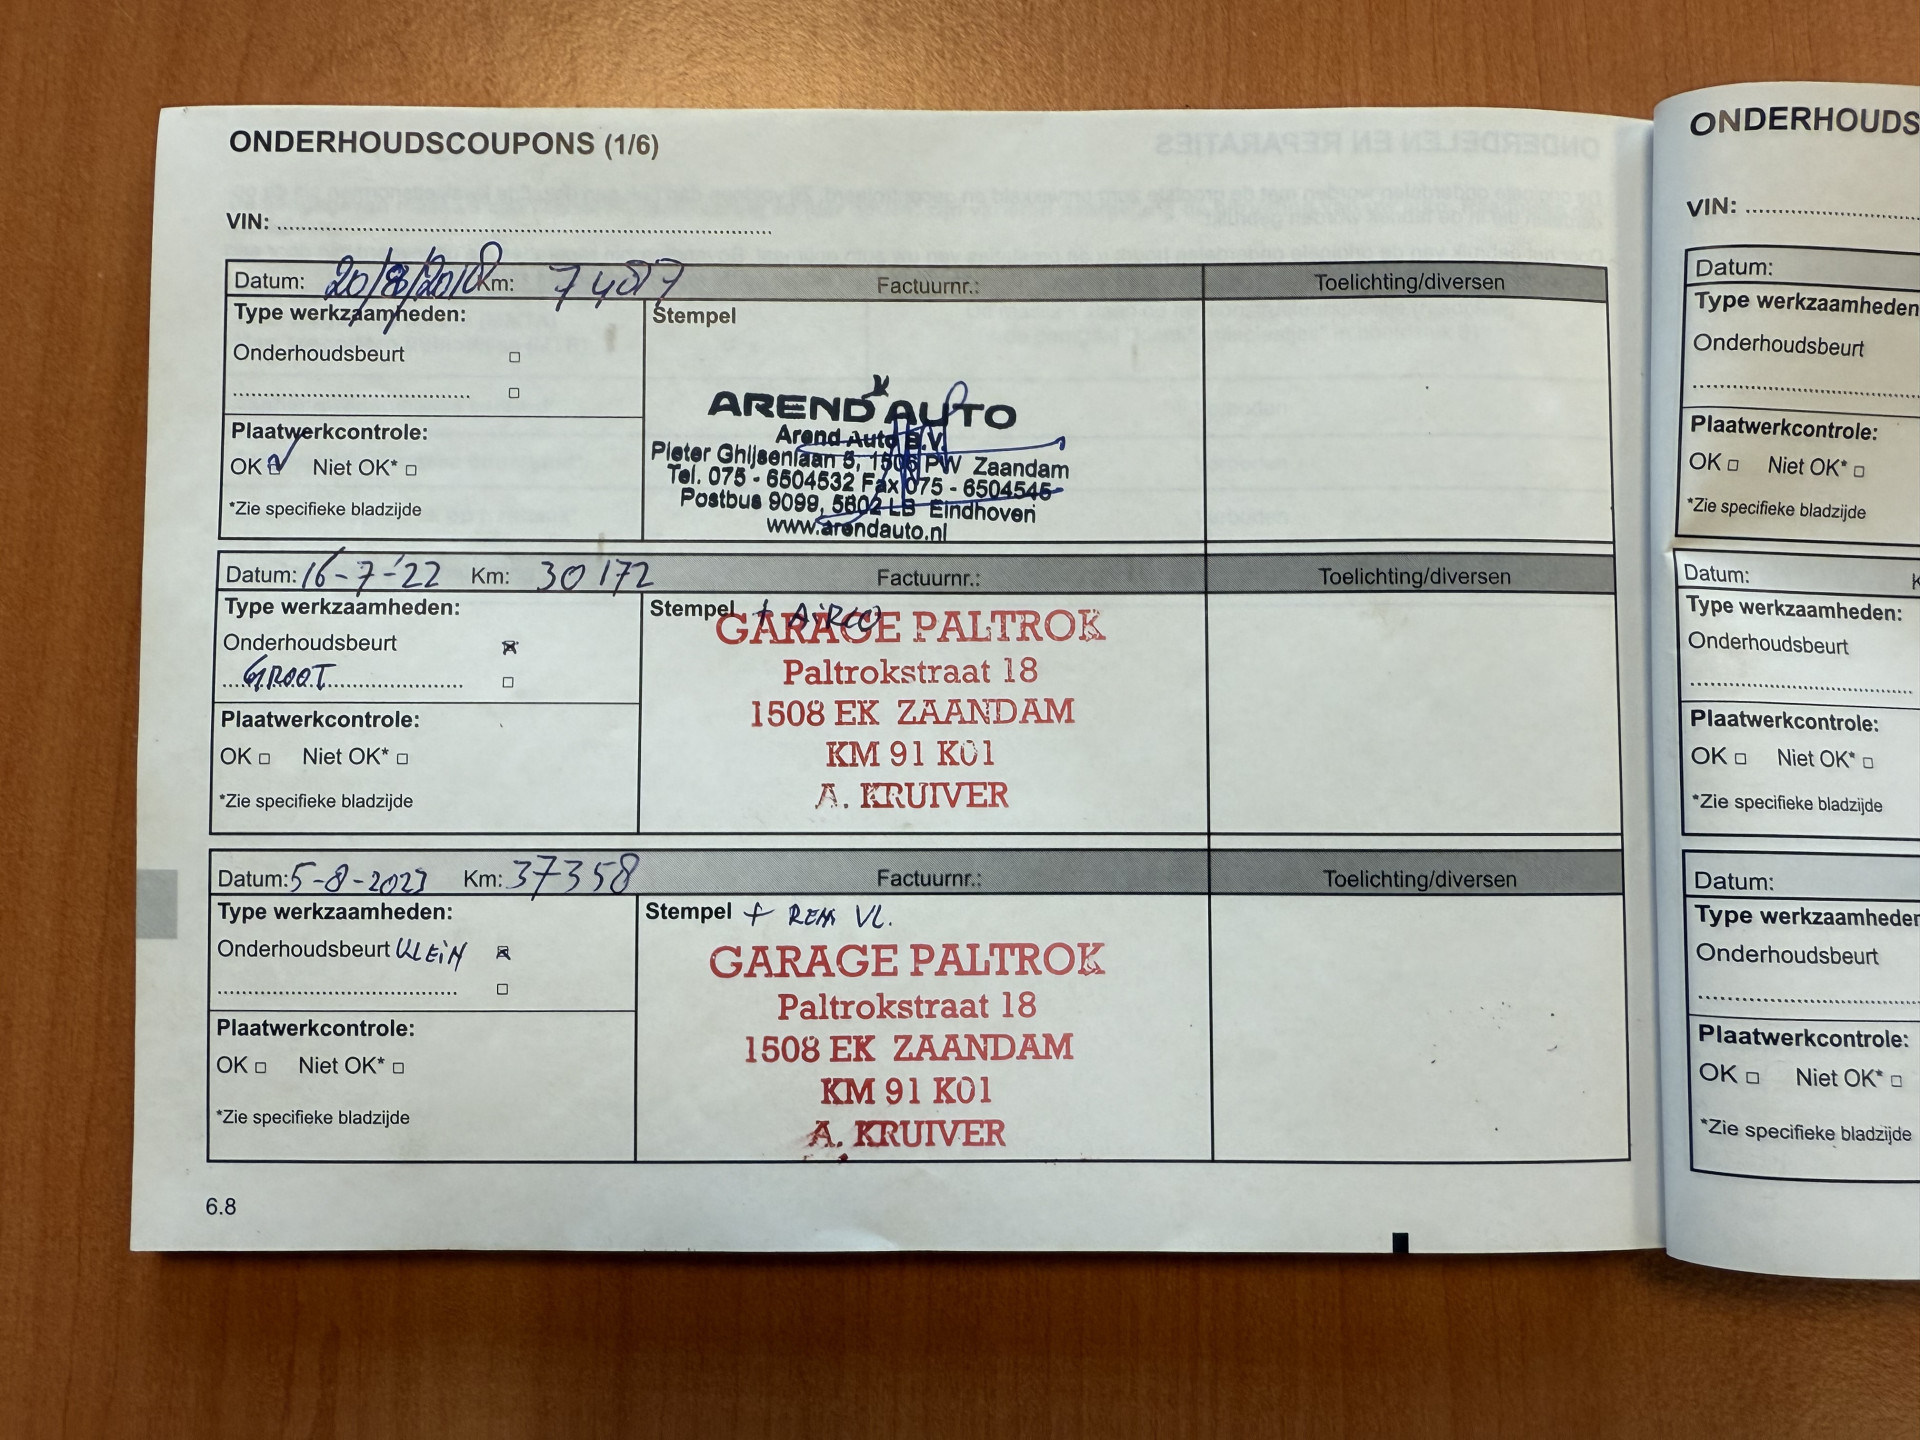 ONDERHOUDSCOUPONS (1/6)
VIN:
Datum: 20/8/2018 Km: 7487 Factuurnr.: Toelichting/diversen
Type werkzaamheden: Stempel
Onderhoudsbeurt
AREND AUTO
Arend Auto B.V.
Pieter Ghijsenlaan 5, 1506 PW Zaandam
Tel. 075 - 6504532 Fax 075 - 6504545
Postbus 9099, 5602 LB Eindhoven
www.arendauto.nl
Plaatwerkcontrole:
OK Niet OK*
*Zie specifieke bladzijde
Datum: 16-7-'22 Km: 30172 Factuurnr.: Toelichting/diversen
Type werkzaamheden: Stempel + AIRCO
Onderhoudsbeurt
GROOT
GARAGE PALTROK
Paltrokstraat 18
1508 EK ZAANDAM
KM 91 K01
A. KRUIVER
Plaatwerkcontrole:
OK Niet OK*
*Zie specifieke bladzijde
Datum: 5-8-2023 Km: 37358 Factuurnr.: Toelichting/diversen
Type werkzaamheden: Stempel + REM VL.
Onderhoudsbeurt KLEIN
GARAGE PALTROK
Paltrokstraat 18
1508 EK ZAANDAM
KM 91 K01
A. KRUIVER
Plaatwerkcontrole:
OK Niet OK*
*Zie specifieke bladzijde
6.8
ONDERHOUDS
VIN:
Datum:
Type werkzaamheden
Onderhoudsbeurt
Plaatwerkcontrole:
OK Niet OK*
*Zie specifieke bladzijde
Datum: K
Type werkzaamheden:
Onderhoudsbeurt
Plaatwerkcontrole:
OK Niet OK*
*Zie specifieke bladzijde
Datum:
Type werkzaamheden
Onderhoudsbeurt
Plaatwerkcontrole:
OK Niet OK*
*Zie specifieke bladzijde